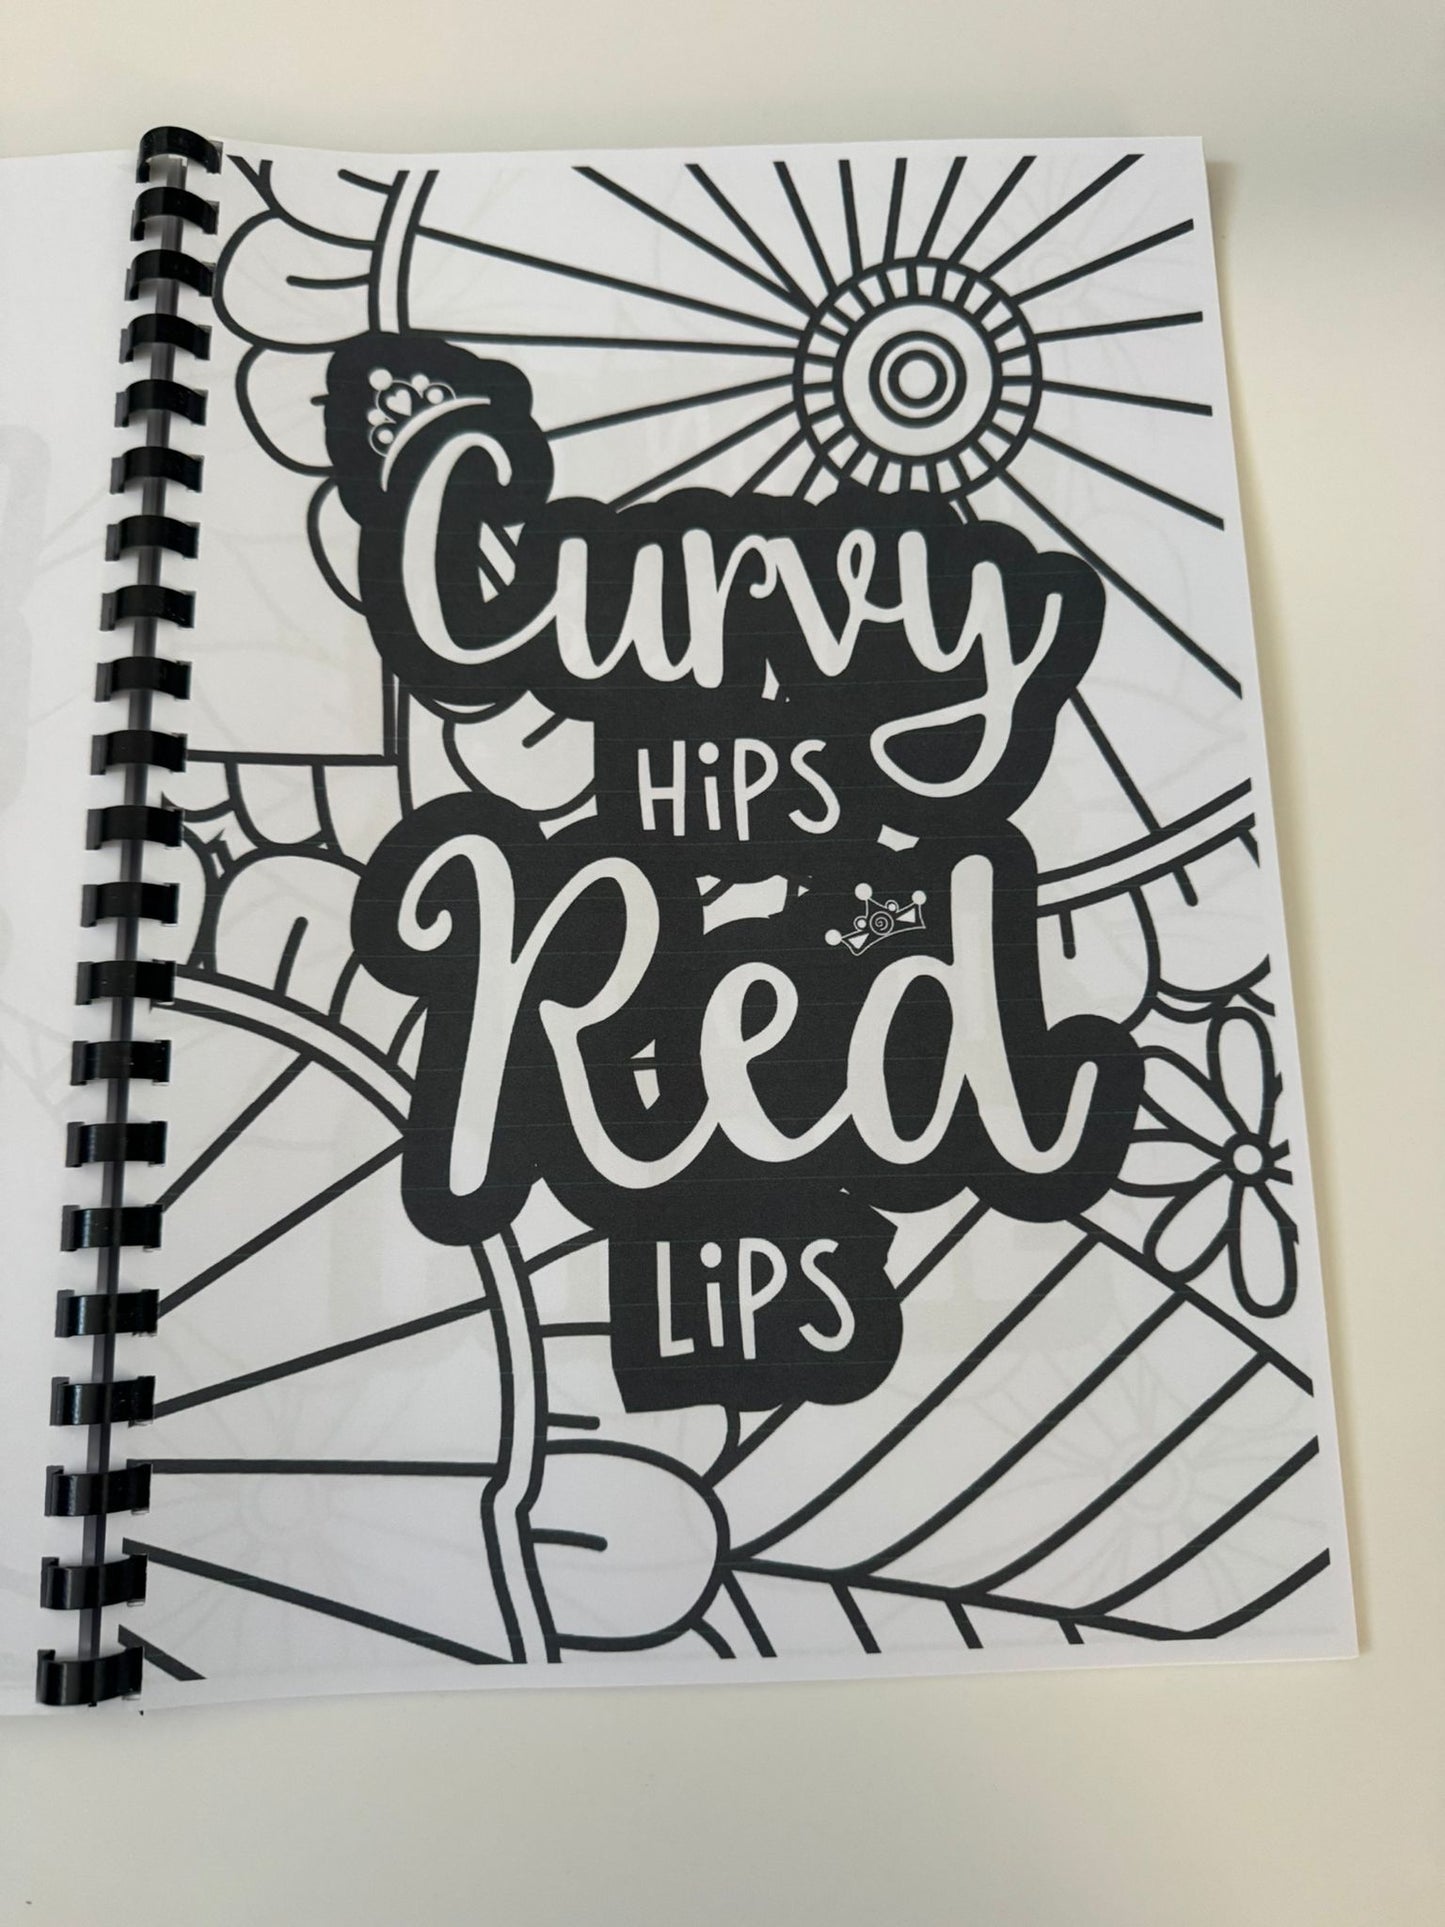 Curvy
HiPS
Red
LiPS